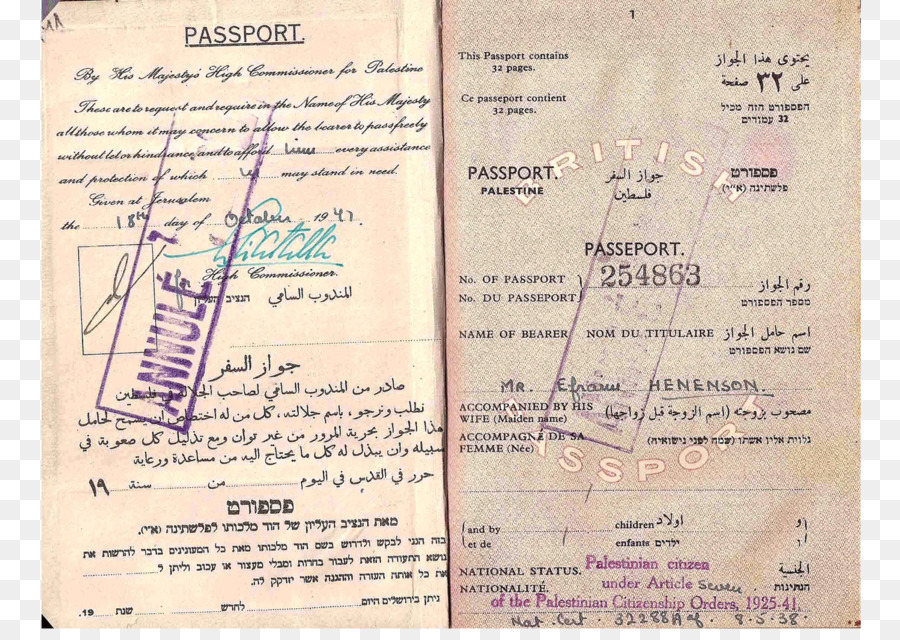 PASSPORT.
By His Majesty's High Commissioner for Palestine
These are to request and require in the Name of His Majesty
all those whom it may concern to allow the bearer to pass freely
without let or hindrance, and to afford him every assistance
and protection of which he may stand in need.
Given at Jerusalem
the 18th day of October 1947.
High Commissioner.
المندوب السامي הנציב העליון
ANNULÉ
جواز السفر
صادر من المندوب السامي لصاحب الجلالة في فلسطين
نطلب ونرجو، باسم جلالته، كل من له اختصاص ان يسمح لحامل
هذا الجواز بحرية المرور من غير توان ومع تذليل كل صعوبة في
سبيله وان يبذل له كل ما يحتاج اليه من مساعدة ورعاية
حرر في القدس في اليوم من سنة ١٩
פספורט
מאת הנציב העליון של הוד מלכותו לפלשתינה (א"י).
בזה הנני לבקש ולדרוש בשם הוד מלכותו מאת כל המעונינים בדבר להרשות את
נושא התעודה הזאת לעבור בחרות ומבלי מעצור או עכוב וליתן ל
את כל אותה העזרה וההגנה אשר יזדקק לה.
ניתן בירושלים היום לחדש שנת 19.
1
This Passport contains
32 pages.
يحتوي هذا الجواز
على ٣٢ صفحة
Ce passeport contient
32 pages.
הפספורט הזה מכיל
32 עמודים
BRITISH
PASSPORT.
PALESTINE
جواز السفر
فلسطين
פספורט
פלשתינה (א"י)
PASSEPORT.
No. OF PASSPORT
No. DU PASSEPORT
254863
رقم الجواز
מספר הפספורט
NAME OF BEARER NOM DU TITULAIRE اسم حامل الجواز
שם נושא הפספורט
MR. Efraim HENENSON.
ACCOMPANIED BY HIS
WIFE (Maiden name)
مصحوب بزوجته (اسم الزوجة قبل زواجها)
ACCOMPAGNÉ DE SA
FEMME (Née)
נלוית אליו אשתו (שמה לפני נישואיה)
PASSPORT
and by children اولاد و
et de enfants ילדים ו
NATIONAL STATUS. الجنسية
NATIONALITÉ. הנתינות
Palestinian citizen
under Article Seven
of the Palestinian Citizenship Orders, 1925-41.
Nat. Cert. 32288A of 8.5.38.